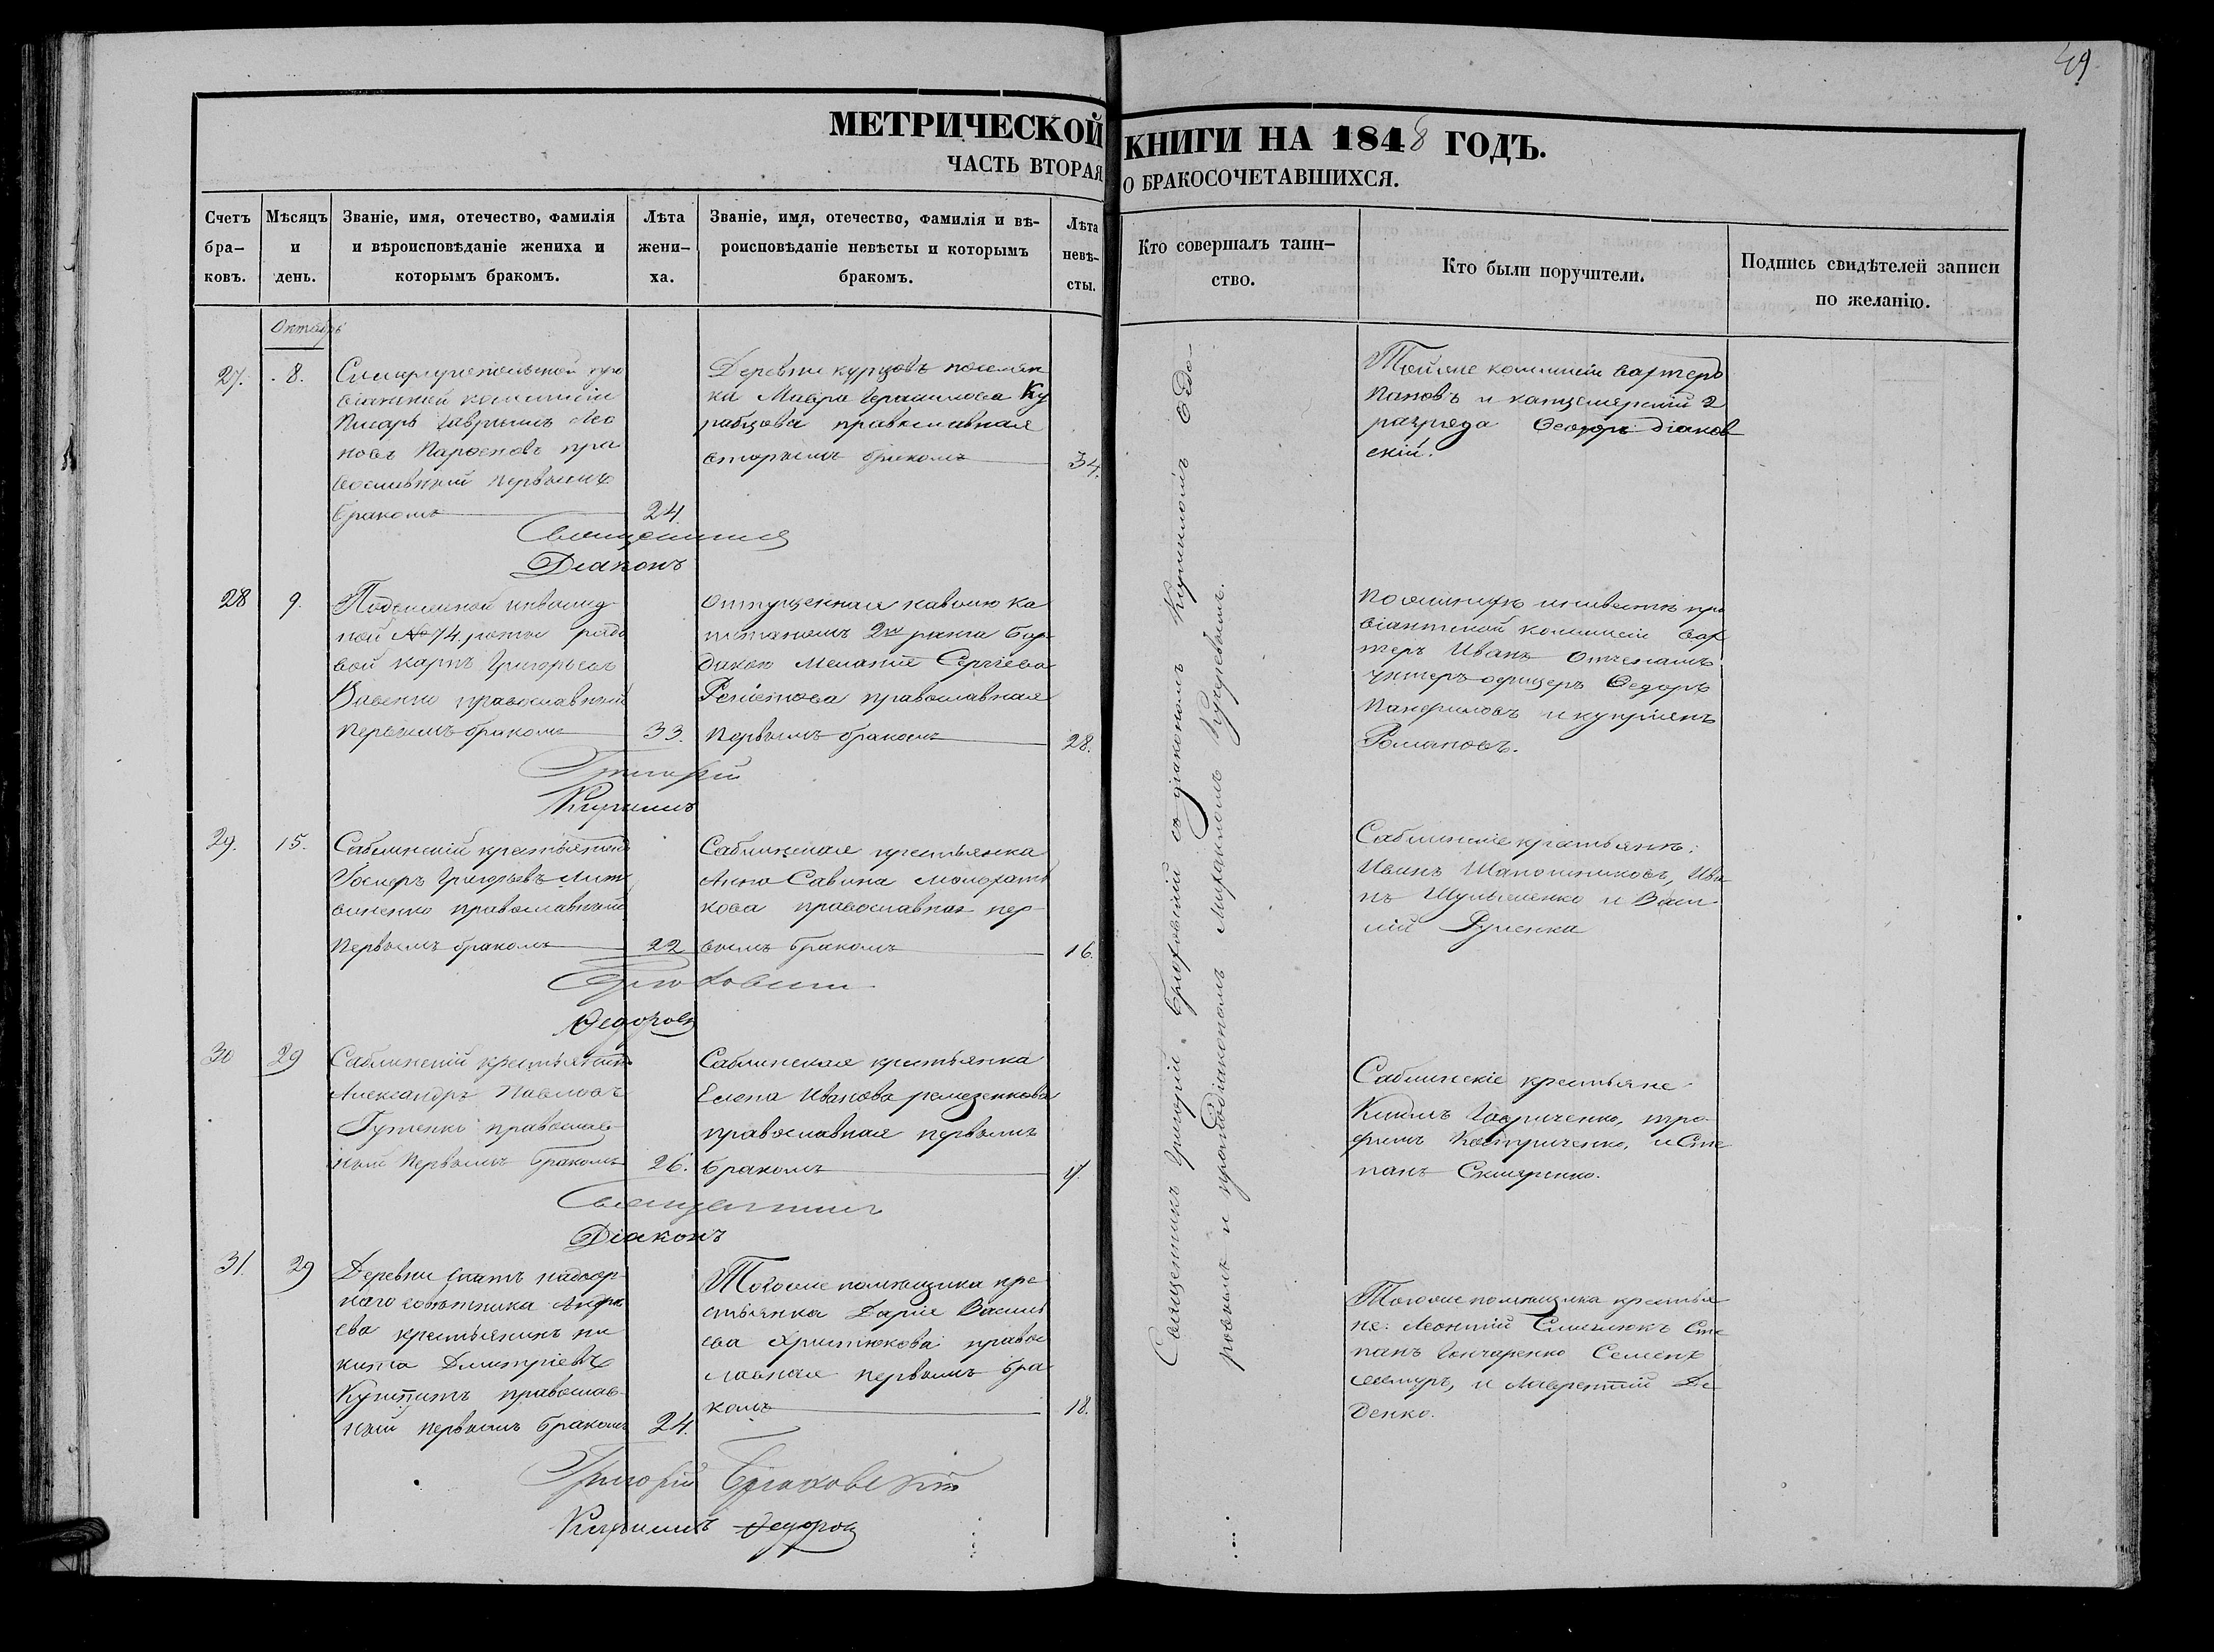 49
МЕТРИЧЕСКОЙ КНИГИ НА 1848 ГОДЪ.
ЧАСТЬ ВТОРАЯ О БРАКОСОЧЕТАВШИХСЯ.
Счетъ бра-
ковъ.
Мѣсяцъ
и
день.
Званіе, имя, отечество, фамилія
и вѣроисповѣданіе жениха и
которымъ бракомъ.
Лѣта
жени-
ха.
Званіе, имя, отечество, фамилія и вѣ-
роисповѣданіе невѣсты и которымъ
бракомъ.
Лѣта
невѣ-
сты.
Кто совершалъ таин-
ство.
Кто были поручители.
Подпись свидѣтелей записи
по желанію.
Октябрь
27. 8.
Симферопольской про
віантской коммисіи
Писарь
Парѳеновъ пра
вославный первымъ
бракомъ 24.
Деревни курцовъ поселян
ка Мавра Герасимова Ку
рабцова православная
вторымъ бракомъ 34.
Тойже коммисіи вахтеръ
Пановъ и канцелярскій 2
разряда Ѳеодоръ Діаков
скій.
Священникъ
Діаконъ
28 9.
Подвижной инвалид
ной № 74 роты рядо
вой карпъ Григорьевъ
православный
первымъ бракомъ 33.
Отпущенная на волю ка
питаномъ 2го ранга Бар
Меланія Сергіева
православная
первымъ бракомъ 28.
віантской коммисіи вах
теръ Иванъ
унтеръ-офицеръ Ѳедоръ
Панфиловъ и купріянъ
Романовъ.
Григорій
Кириллъ
29. 15.
Саблинскій крестьянинъ
Григорьевъ Лит
виненко православный
первымъ бракомъ 22
Саблинская крестьянка
Анна Савина
кова православная пер-
вымъ бракомъ 16.
Саблинскіе крестьяне:
Иванъ Шапошниковъ, Ива
нъ Шульженко и Васи
лій Руденка
Бруховскій
Ѳедоровъ
30 29
Саблинскій крестьянинъ
Александръ Павловъ
Гутенко православ-
ный первымъ бракомъ 26.
Саблинская крестьянка
Елена Иванова ремезенкова
православная первымъ
бракомъ 17.
Саблинскіе крестьяне
Гавриченко, тро
фимъ Кастриченко, и Сте
панъ Скляренко.
Священникъ
Діаконъ
31. 29
Деревни надвор-
наго совѣтника Андре
ева крестьянинъ ни
кита Дмитріевъ
православ-
ный первымъ бракомъ 24.
Тогоже помѣщика кре
стьянка Дарія Василь
ева Христюкова правос
лавная первымъ бра
комъ 18.
Тогоже помѣщика крестья
не: Леонтій Смолюкъ Сте
панъ Гончаренко Семенъ
и Лаврентій Де
денко.
Григорій Бруховскій
Кириллъ Ѳедоровъ
Священникъ Григорій Бруховскій съ діакономъ Кирилломъ Ѳедо-
ровымъ и протодіакономъ Михаиломъ